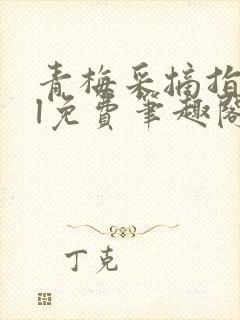 青梅采摘指
l免费笔趣阁
丁克